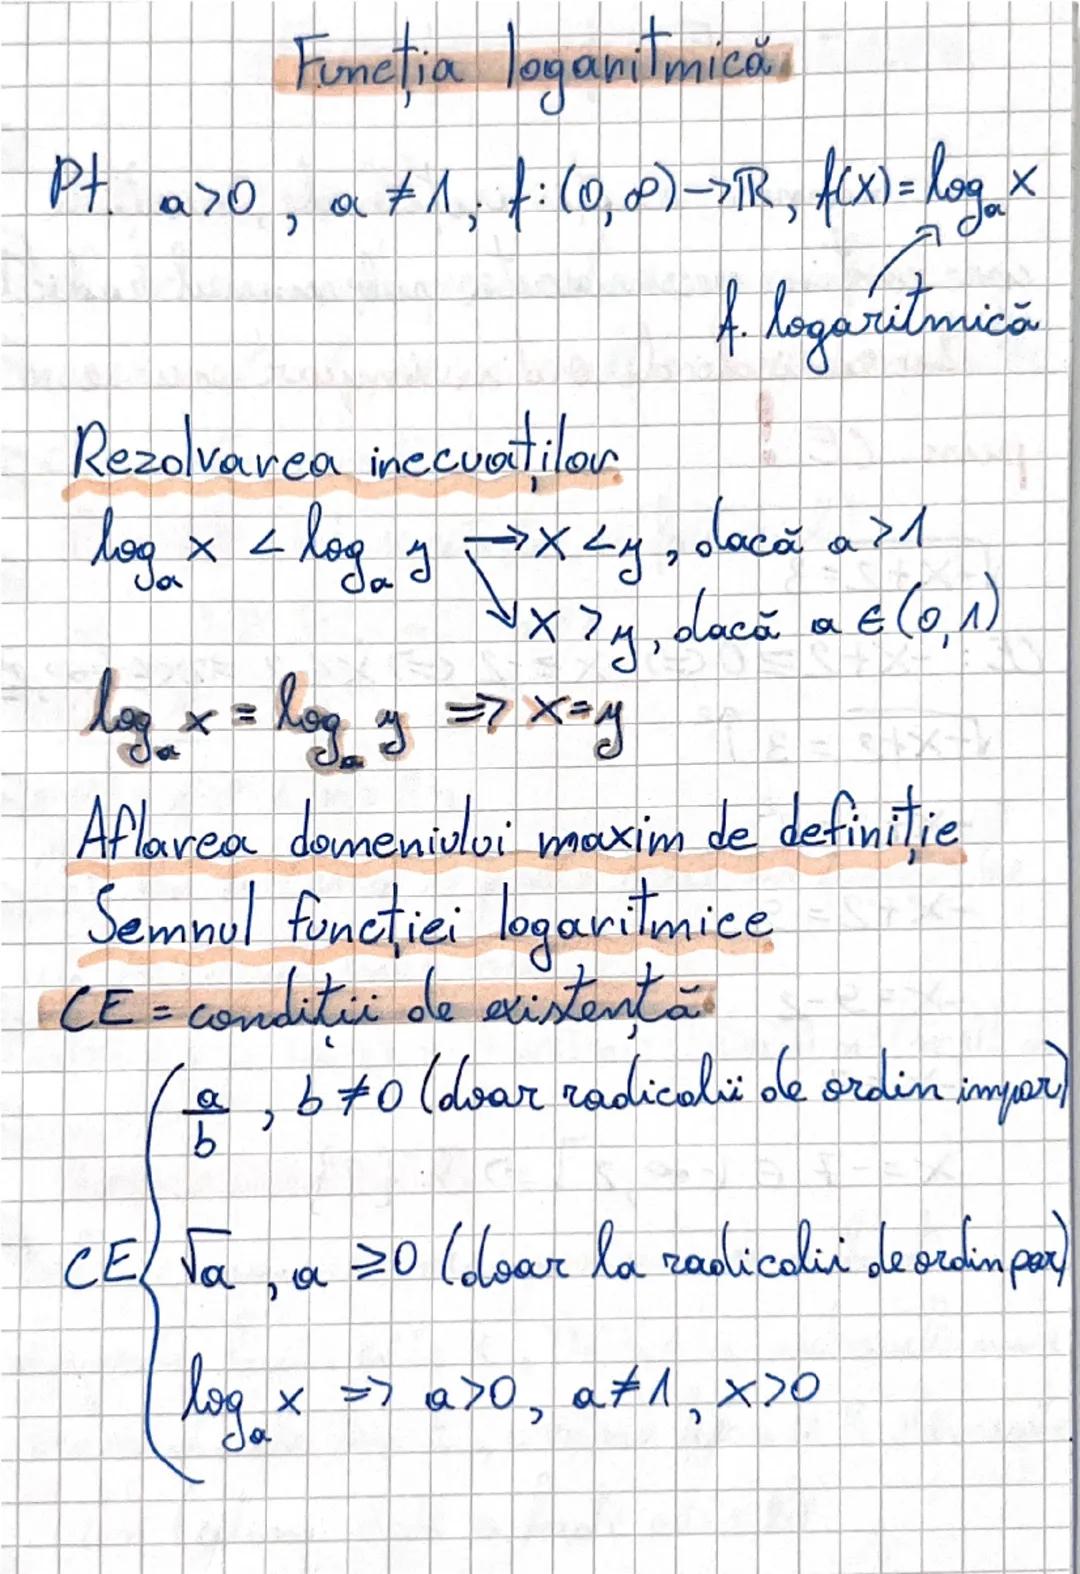 Funcția logaritmică
Pt. a>0, a≠1; f:(0,∞)->ℝ, f(x)=logₐ x
f. logaritmică
Rezolvarea inecuaților
logₐ x < logₐ y → x<y, dacă a>1
↘ x>y, dacă a∈(0,1)
logₐ x = logₐ y => x=y
Aflarea domeniului maxim de definiție
Semnul funcției logaritmice
CE = condiții de existență
a/b, b≠0 (doar radicalii de ordin impar)
CE { √a, a≥0 (doar la radicalii de ordin par)
logₐ x => a>0, a≠1, x>0